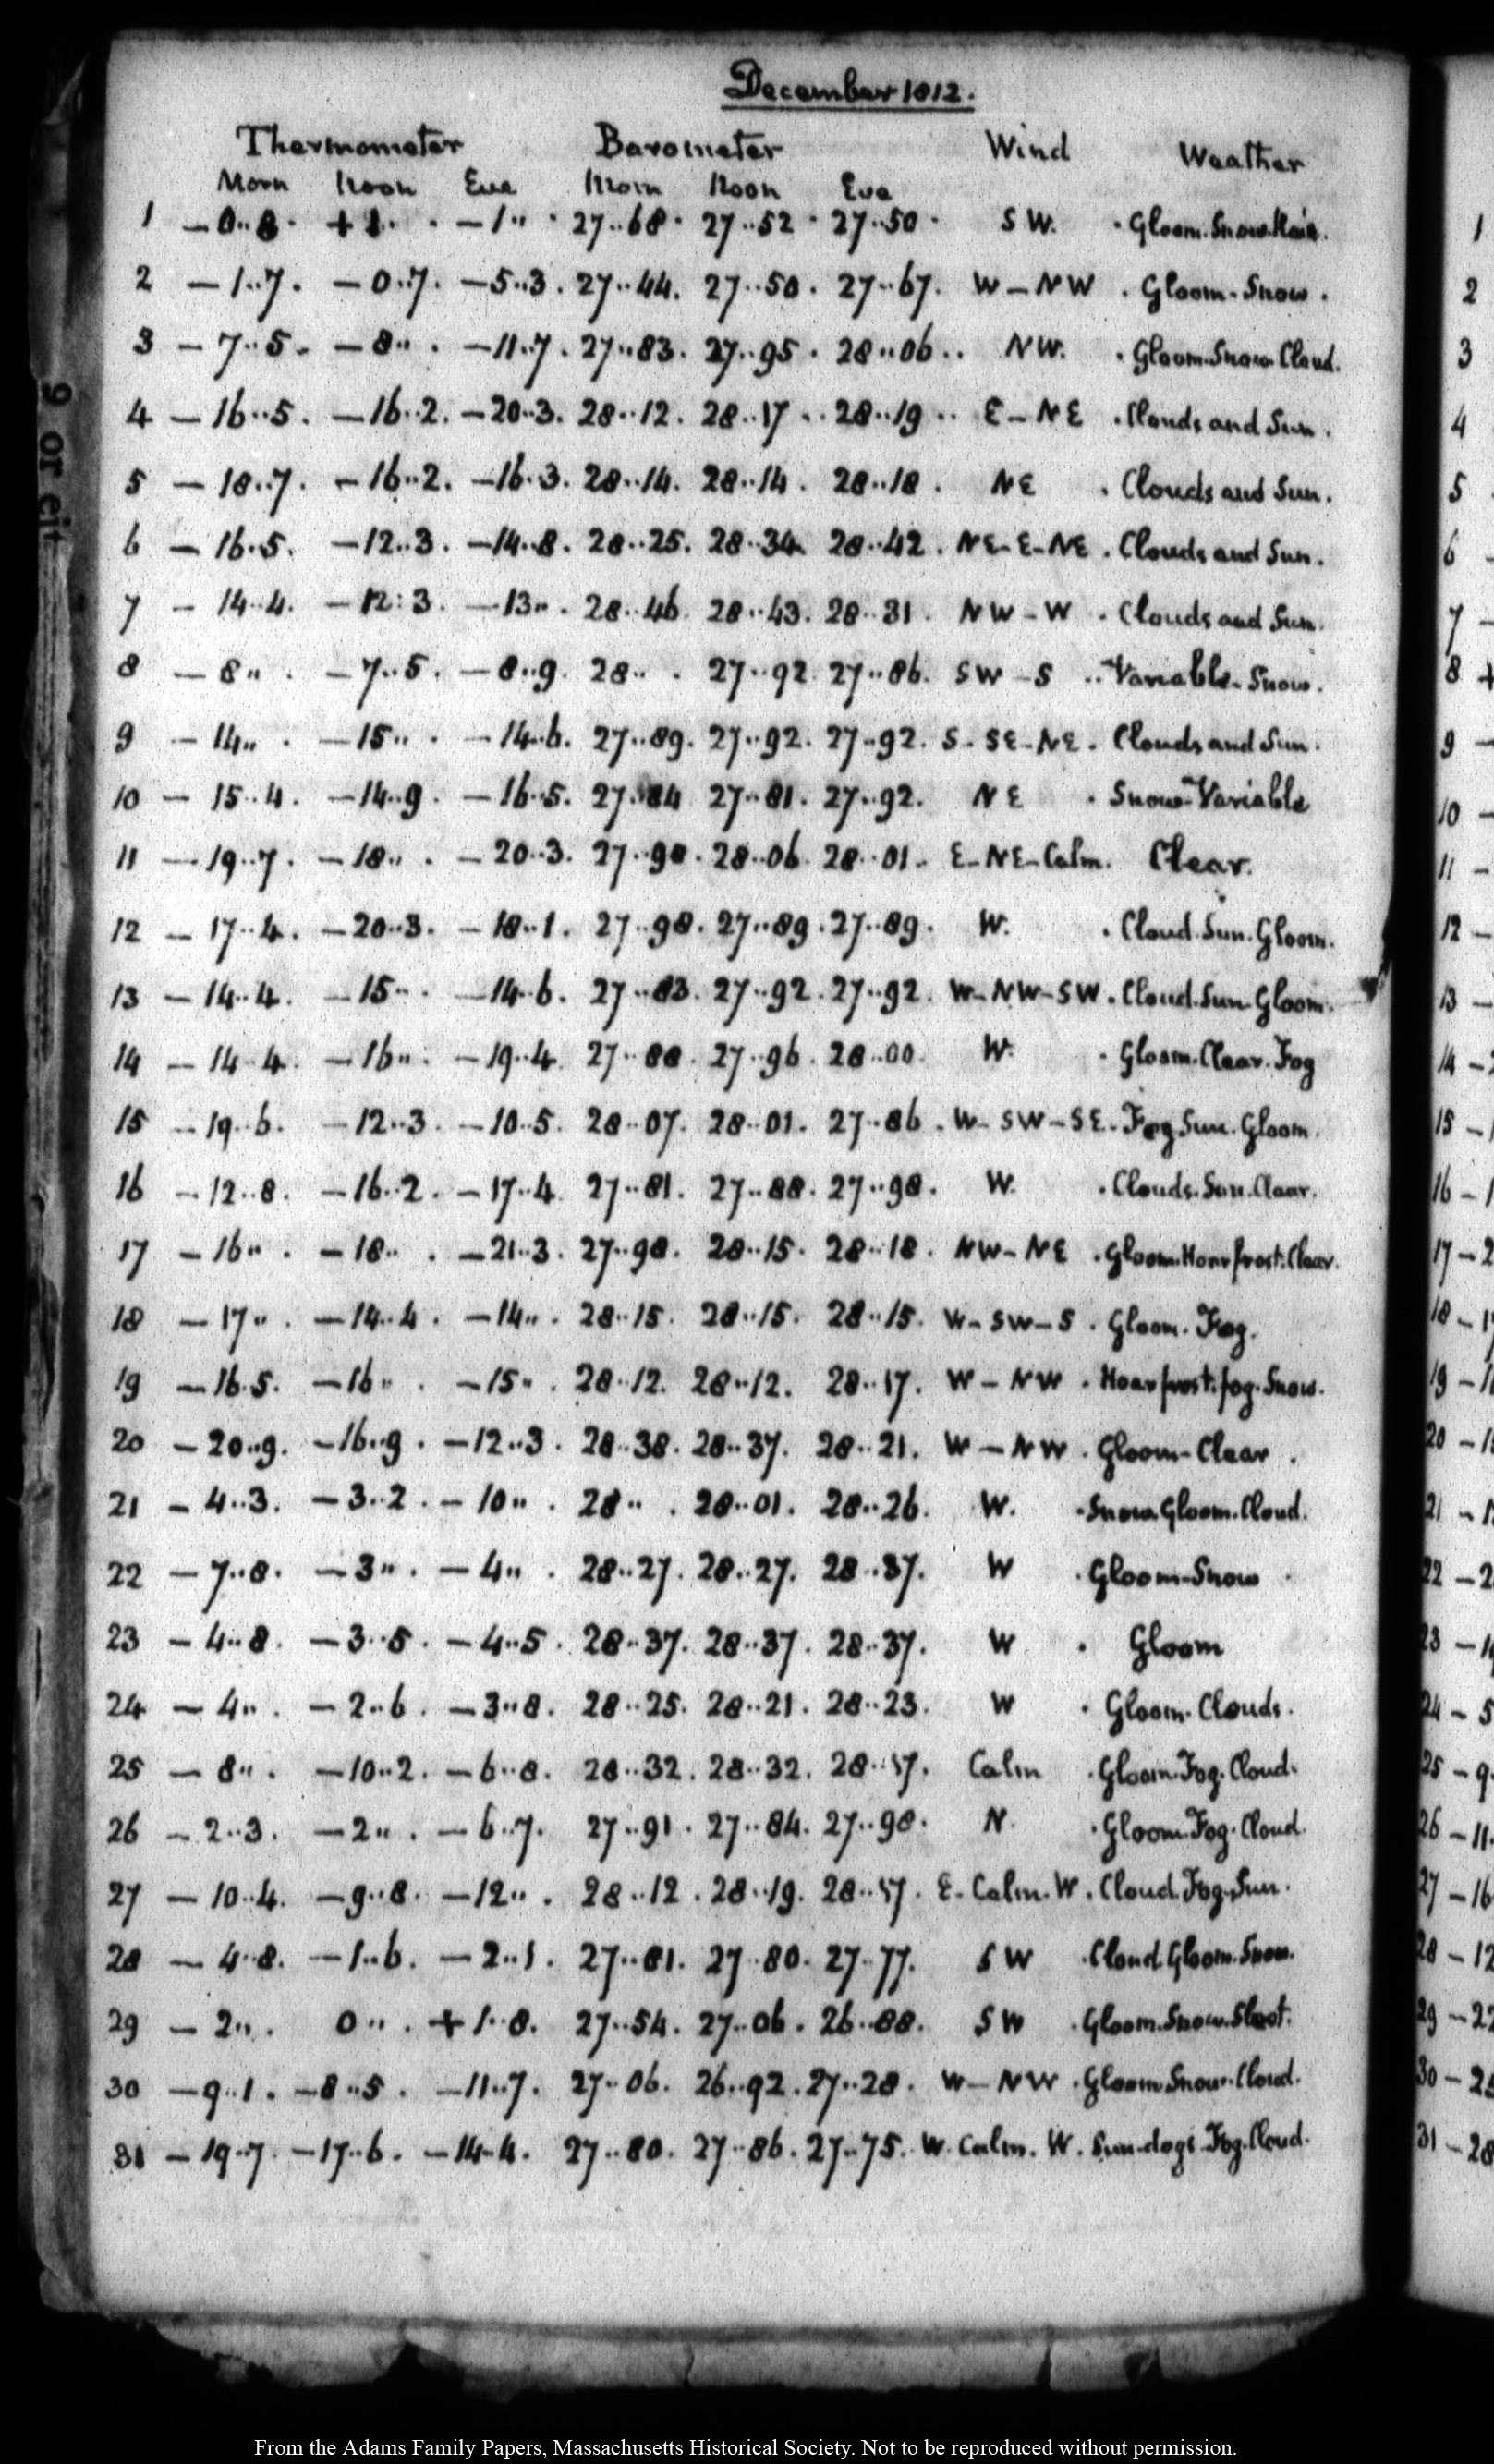 December 1812.
Thermometer Barometer Wind Weather
Morn Noon Eve Morn Noon Eve
1 — 0..8. + 1.. . — 1.. . 27..68. 27..52. 27..50. SW. . Gloom. Snow. Rain.
2 — 1..7. — 0..7. — 5..3. 27..44. 27..50. 27..67. W — NW . Gloom - Snow.
3 — 7..5. — 8.. . — 11..7. 27..83. 27..95. 28..06.. NW. . Gloom. Snow. Cloud.
4 — 16..5. — 16..2. — 20..3. 28..12. 28..17.. 28..19.. E — NE . Clouds and Sun.
5 — 18..7. — 16..2. — 16..3. 28..14. 28..14. 28..18. NE . Clouds and Sun.
6 — 16..5. — 12..3. — 14..8. 28..25. 28..34. 28..42. NE - E - NE . Clouds and Sun.
7 — 14..4. — 12..3. — 13.. . 28..46. 28..43. 28..31. NW - W . Clouds and Sun.
8 — 8.. . — 7..5. — 8..9. 28.. . 27..92. 27..86. SW - S .. Variable - Snow.
9 — 14.. . — 15.. . — 14..6. 27..89. 27..92. 27..92. S - SE - NE . Clouds and Sun.
10 — 15..4. — 14..9. — 16..5. 27..84 27..81. 27..92. NE . Snow - Variable
11 — 19..7. — 18.. . — 20..3. 27..98. 28..06. 28..01. E - NE - Calm. Clear.
12 — 17..4. — 20..3. — 18..1. 27..98. 27..89. 27..89. W. . Cloud. Sun. Gloom.
13 — 14..4. — 15.. . — 14..6. 27..83. 27..92. 27..92. W - NW - SW . Cloud. Sun. Gloom.
14 — 14..4. — 16.. . — 19..4. 27..88. 27..96. 28..00. W. . Gloom. Clear. Fog
15 — 19..6. — 12..3. — 10..5. 28..07. 28..01. 27..86. W - SW - SE . Fog Sun. Gloom.
16 — 12..8. — 16..2. — 17..4. 27..81. 27..88. 27..98. W. . Clouds. Sun. Clear.
17 — 16.. . — 18.. . — 21..3. 27..98. 28..15. 28..18. NW - NE . Gloom. Hoar frost. Clear.
18 — 17.. . — 14..4. — 14.. . 28..15. 28..15. 28..15. W - SW - S . Gloom. Fog.
19 — 16..5. — 16.. . — 15.. . 28..12. 28..12. 28..17. W — NW . Hoar frost. fog. Snow.
20 — 20..9. — 16..9. — 12..3. 28..38. 28..37. 28..21. W — NW . Gloom - Clear .
21 — 4..3. — 3..2. — 10.. . 28.. . 28..01. 28..26. W. . Snow. Gloom. Cloud.
22 — 7..8. — 3.. . — 4.. . 28..27. 28..27. 28..37. W . Gloom - Snow
23 — 4..8. — 3..5. — 4..5. 28..37. 28..37. 28..37. W . Gloom
24 — 4.. . — 2..6. — 3..8. 28..25. 28..21. 28..23. W . Gloom. Clouds.
25 — 8.. . — 10..2. — 6..8. 28..32. 28..32. Calm . Gloom. Fog. Cloud.
26 — 2..3. — 2.. . — 6..7. 27..91. 27..84. 27..98. N. . Gloom. Fog. Cloud.
27 — 10..4. — 9..8. — 12.. . 28..12. 28..19. E. Calm. W. Cloud. Fog. Sun.
28 — 4..8. — 1..6. — 2..1. 27..81. 27..80. 27..77. SW . Cloud Gloom. Snow.
29 — 2.. . 0.. . + 1..8. 27..54. 27..06. 26..88. SW . Gloom. Snow. Sleet.
30 — 9..1. — 8..5. — 11..7. 27..06. 26..92. 27..28. W — NW . Gloom Snow. Cloud.
31 — 19..7. — 17..6. — 14..4. 27..80. 27..86. 27..75. W. Calm. W. Sun-dogs. Fog. Cloud.
From the Adams Family Papers, Massachusetts Historical Society. Not to be reproduced without permission.